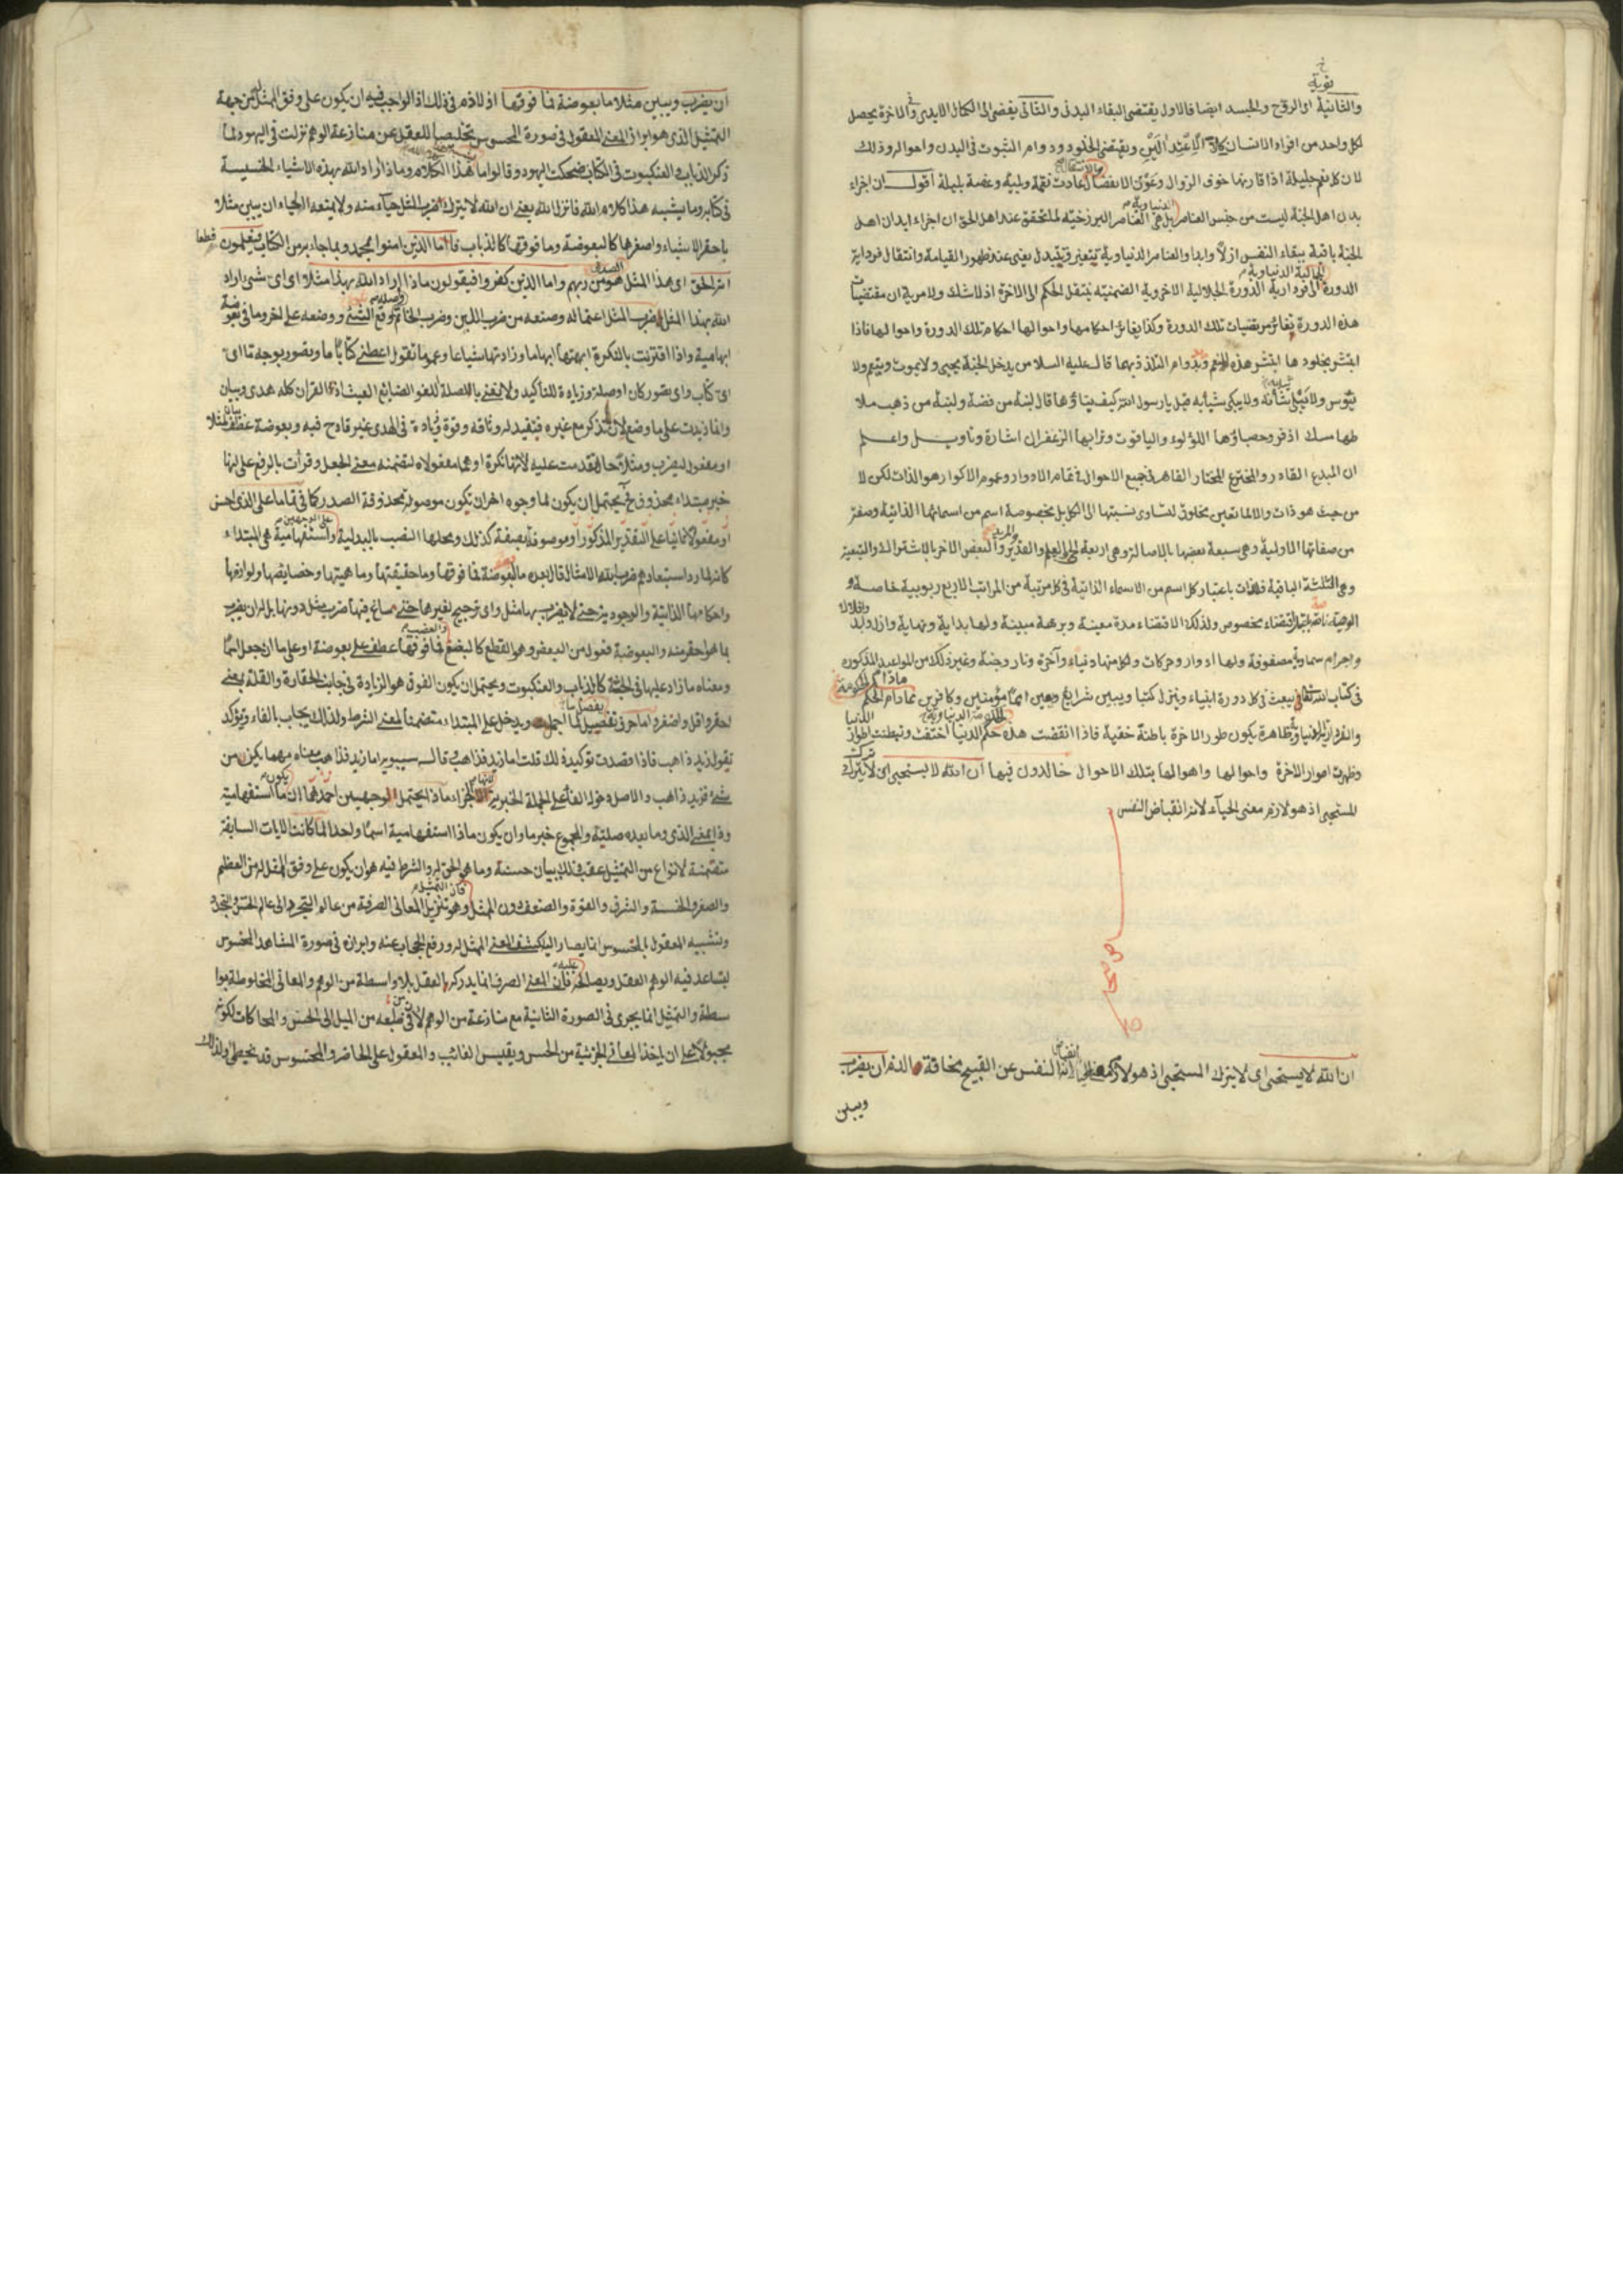 والثانية اى الروح والجسد ايضا فالاول يقتضى البقاء البدنى والثانى يفضى الى الكمال الابدى والآخرة يحصل
لكل واحد من افراد الانسان ويقتضى الخلود ودوام الثبوت فى البدن واحواله وذلك
لان كل نعم جليلة اذا قارنها خوف الزوال الانفصال عادت نقمة وبلية وغمة بليلة اقول ان اجزاء
بدن اهل الجنة ليست من جنس العناصر بل هى العناصر البرزخية لما تحقق عند اهل الحق ان اجزاء ابدان اهل
الجنة باقية ببقاء النفس ازلا وابدا والعناصر الدنياوية تتغير وتتبدل يعنى عند ظهور القيامة وانتقال
الدورة الجلالية الاخروية الضمنية ينتقل الحكم الى الآخرة اذ لا شك ولا مرية ان مقتضيات
هذه الدورة تغاير مقتضيات تلك الدورة وكذا يغاير احكامها واحوالها احكام تلك الدورة واحوالها فاذا
ابتشر بخلودها ابتشر هذه النعم وبدوام التلذذ بها قال عليه السلام من يدخل الجنة يحيى ولا يموت وينعم ولا
ولا شبابه قيل يا رسول الله كيف بناؤها قال لبنة من فضة ولبنة من ذهب ملا
طها مسك اذفر وحصباؤها اللؤلؤ والياقوت وترابها الزعفران اشارة وتأويل واعلم
ان المبدع القادر والمخترع المختار القاهر فى جميع الاحوال فى تمام الادوار وعموم الاكوار هو الذات لكن لا
من حيث هو ذات والا لما تعين مخلوق لتساوى نسبتها الى الكل بل بخصوصة اسم من اسمائها الذاتية وصفة
من صفاتها الاولية وهى سبعة بعضها بالاصالة وهى اربعة والبعض الآخر بالاشتراك والتبعية
وهى الثلثة الباقية فالذات باعتبار كل اسم من الاسماء الذاتية فى كل مرتبة من المراتب الاربع ربوبية خاصة و
اقتضاء مخصوص ولذلك الاقتضاء مدة معينة وبرهة مبينة ولها بداية ونهاية
واجرام سماوية مصفوفة ولها ادوار وحركات ولكل منها دنياء وآخرة ونار وجنة وغير ذلك من المواعيد المذكورة
فى كتاب الله تعالى يبعث فى كل دورة انبياء وينزل كتبا ويبين شرايع ويعين امما مؤمنين وكافرين فما دام الحكم
ظاهرة يكون طور الآخرة باطنة خفية فاذا انقضت هذه حكم الدنيا اختفت وتبطنت اطوار
وظهرت اطوار الآخرة واحوالها واهوالها بتلك الاحوال خالدون فيها ان الله لا يستحيى اى لا يترك ترك
المستحيى اذ هو لازم معنى الحياء لانه انقباض النفس
ان الله لا يستحيى اى لا يترك المستحيى اذ هو لازم النفس عن القبيح مخافة الذم ان يضرب
ويبين
ان يضرب ويبين مثلا ما بعوضة فما فوقها اذ لا ذم فى ذلك اذ الواجب فيه ان يكون على وفق الممثل له من جهة
التمثيل الذى هو ابراز المعنى المعقول فى صورة المحسوس تخليصا للعقل عن منازعة الوهم نزلت فى اليهود لما
ذكر الذباب والعنكبوت فى الكتاب ضحكت اليهود وقالوا ما هذا الكلام وما ذا اراد الله بهذه الاشياء الخسيسة
فى كتابه وما يشبه هذا كلام الله فانزل الله يعنى ان الله لا يترك ضرب المثل حياء منه ولا يمنعه الحياء ان يبين مثلا
باحقر الاشياء واصغرها كالبعوضة وما فوقها كالذباب فاما الذين آمنوا بمحمد وبما جاء به من الكتاب فيعلمون قطعا
انه الحق اى هذا المثل هو الصدق من ربهم واما الذين كفروا فيقولون ماذا اراد الله بهذا مثلا اى اى شىء اراد
الله بهذا المثل ضرب المثل اعتماله وصنعه من ضرب اللبن وضرب الخاتم واصله وقع الشىء ووضعه على آخر وما فى بعوضة
ابهامية واذا اقترنت بالنكرة ابهمتها ابهاما وزادتها شياعا وعموما تقول اعطنى كتابا ما ويصور بوجه ما اى
اى كتاب واى يصور كان او صلة وزيادة للتأكيد ولا يعنى بالصلة اللغو الضايع العبث اذ القرآن كله هدى وبيان
وانما زيدت على ما وضع لان تذكر مع غيره فيفيد له وثاقة وقوة وزيادة فى الهدى غير قادح فيه وبعوضة عطف بيان لمثلا
او مفعول ليضرب ومثلا حال تقدمت عليه لانها نكرة او هما مفعولاه لتضمنه معنى الجعل وقرأت بالرفع على انها
خبر مبتداء محذوف يحتمل ان يكون لما وجوه اخر ان تكون موصولة محذوفة الصدر كما فى تماما على الذى احسن
او مفعولا ثانيا على التقدير المذكور او موصوفة بصفة كذلك ومحلها النصب بالبدلية واستفهامية هى المبتداء
كانه لما رد استبعادهم ضرب الله الامثال قال بعده ما البعوضة فما فوقها وما حقيقتها وما هيتها وخصايصها ولوازمها
واحكامها الذاتية والوجودية حتى لا يضرب بها مثل واى ترجيح لغيرها حتى ساغ فيها ضرب مثل دونها بل له ان يضرب
بما هو احقر منه والبعوضة فعول من البعض وهو القطع كالبضع والعضب فما فوقها عطف على بعوضة او على ما ان جعل اسما
ومعناه ما زاد عليها فى الجثة كالذباب والعنكبوت ويحتمل ان يكون الفوق هو الزيادة فى جانب الحقارة والقلة يعنى
احقر واقل واصغر واما حرف تفصيل يفصل ما اجمل ويدخل على المبتداء متضمنا لمعنى الشرط ولذلك يجاب بالفاء ويؤكد
تقول زيد ذاهب فاذا قصدت توكيد ذلك قلت اما زيد فذاهب قال سيبويه اما زيد فذاهب معناه مهما يكن من
شىء فزيد ذاهب والاصل دخول الفاء على الجملة الخبرية لانها الجزاء ماذا يحتمل الوجهين احدهما ان يكون ما استفهامية
وذا بمعنى الذى وما بعده صلته والمجموع خبر ما وان يكون ماذا استفهامية اسما واحدا لما كانت الآيات السابقة
متضمنة لانواع من التمثيل عقب ذلك ببيان حسنه وما هو الحق له والشرط فيه هو ان يكون على وفق الممثل له من العظم
والصغر والخسة والشرف والقوة والضعف دون الممثل فان التمثيل وهو تنزيل المعانى الصرفة من عالم التجرد الى عالم الحس
وتشبيه المعقول بالمحسوس انما يصار اليه لكشف المعنى الممثل له ورفع الحجاب عنه وابرازه فى صورة المشاهد المحسوس
ليساعد فيه الوهم العقل ويصالحه عليه فان المعنى الصرف انما يدركها العقل بلا واسطة من الوهم والمعانى المخلوطة بوا
سطة والتمثيل انما يجرى فى الصورة الثانية مع منازعة من الوهم لان من طبعه من الميل الى الحس والمحاكات لكونه
مجبولا على ان ياخذ المعانى الجزئية من الحس ويقيس الغائب والمعقول على الحاضر والمحسوس قد يخطئ ولذلك